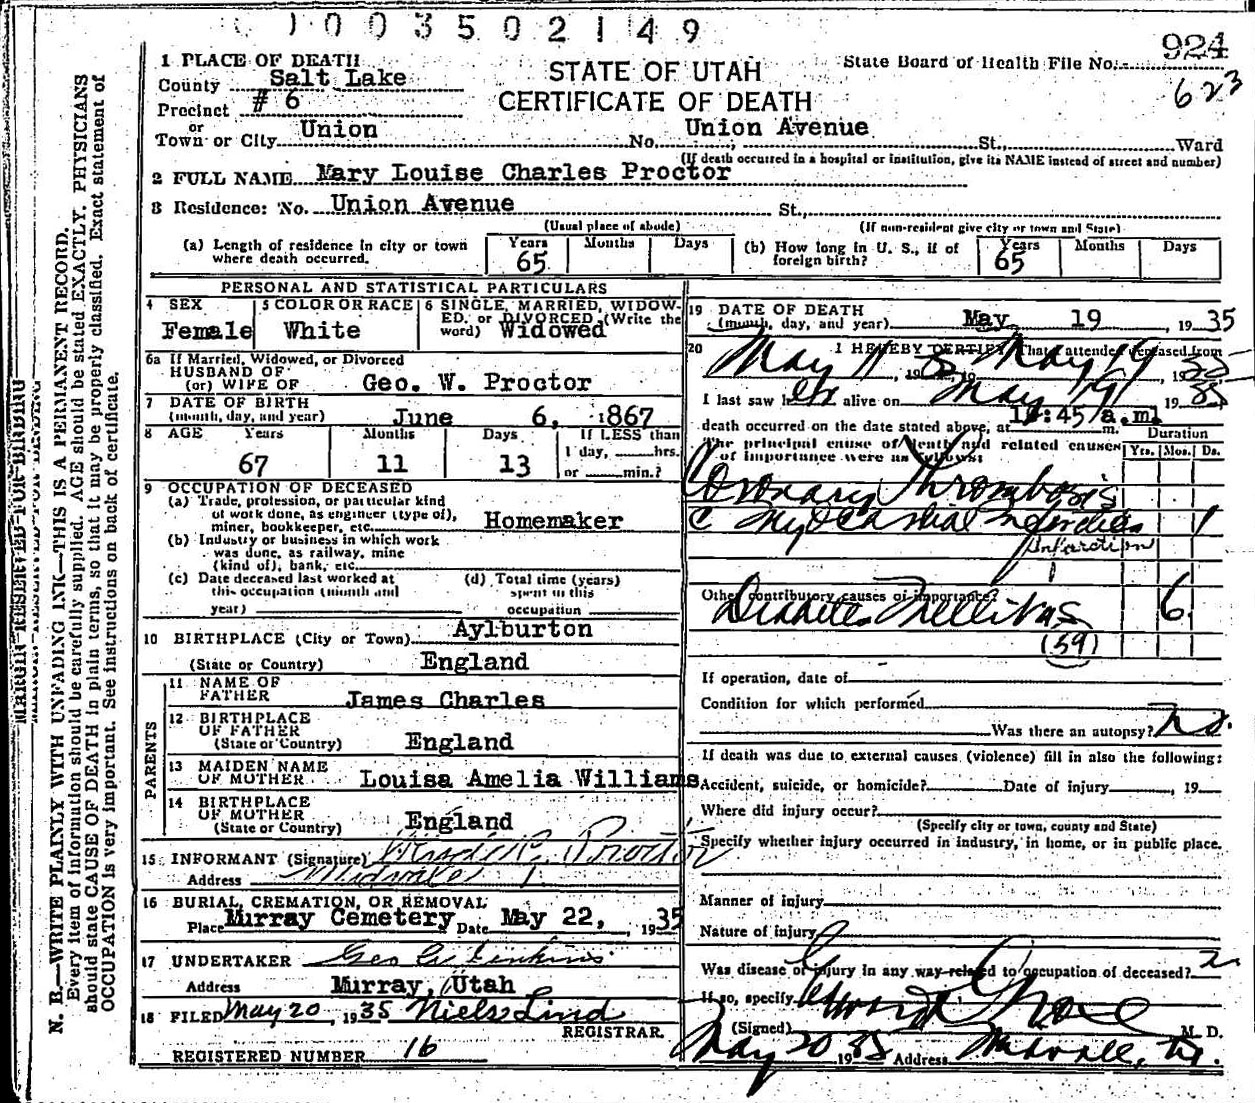 1003502149
924
623
1 PLACE OF DEATH
STATE OF UTAH
State Board of Health File No.
County Salt Lake
CERTIFICATE OF DEATH
Precinct # 6
or
Town or City Union No. Union Avenue St., Ward
(If death occurred in a hospital or institution, give its NAME instead of street and number)
2 FULL NAME Mary Louise Charles Proctor
3 Residence: No. Union Avenue St.,
(Usual place of abode) (If non-resident give city or town and State)
(a) Length of residence in city or town where death occurred. Years 65 Months Days
(b) How long in U. S., if of foreign birth? Years 65 Months Days
PERSONAL AND STATISTICAL PARTICULARS
4 SEX Female
5 COLOR OR RACE White
6 SINGLE, MARRIED, WIDOWED, or DIVORCED (Write the word) Widowed
6a If Married, Widowed, or Divorced
HUSBAND OF
(or) WIFE OF Geo. W. Proctor
7 DATE OF BIRTH
(month, day, and year) June 6, 1867
8 AGE Years Months Days If LESS than
67 11 13 1 day, hrs.
or min.?
9 OCCUPATION OF DECEASED
(a) Trade, profession, or particular kind
of work done, as engineer (type of),
miner, bookkeeper, etc. Homemaker
(b) Industry or business in which work
was done, as railway, mine
(kind of), bank, etc.
(c) Date deceased last worked at
this occupation (month and
year)
(d) Total time (years)
spent in this
occupation
10 BIRTHPLACE (City or Town) Aylburton
(State or Country) England
PARENTS
11 NAME OF
FATHER James Charles
12 BIRTHPLACE
OF FATHER
(State or Country) England
13 MAIDEN NAME
OF MOTHER Louisa Amelia Williams
14 BIRTHPLACE
OF MOTHER
(State or Country) England
15 INFORMANT (Signature) Proctor
Address Midvale
16 BURIAL, CREMATION, OR REMOVAL
Place Murray Cemetery Date May 22, 1935
17 UNDERTAKER Geo A. Jenkins
Address Murray, Utah
18 FILED May 20, 1935 Niels Lind
REGISTRAR.
REGISTERED NUMBER 16
19 DATE OF DEATH
(month, day, and year) May 19, 1935
20 I HEREBY CERTIFY, That I attended deceased from
May 11, 1935 to May 19, 1935
I last saw her alive on May 19, 1935
death occurred on the date stated above, at :45 a.m. m.
The principal cause of death and related causes
of importance were as follows:
Duration
Yrs. Mos. Ds.
Coronary Thrombosis
c Myocardial Infarction 1
Infarction
Other contributory causes of importance:
Diabetes Mellitus 6
(59)
If operation, date of
Condition for which performed
Was there an autopsy? No.
If death was due to external causes (violence) fill in also the following:
Accident, suicide, or homicide? Date of injury , 19
Where did injury occur?
(Specify city or town, county and State)
Specify whether injury occurred in industry, in home, or in public place.
Manner of injury
Nature of injury
Was disease or injury in any way related to occupation of deceased?
If so, specify
(Signed) M. D.
May 20 1935 Address Midvale, Ut.
MARGIN RESERVED FOR BINDING
N. B.—WRITE PLAINLY WITH UNFADING INK—THIS IS A PERMANENT RECORD.
Every item of information should be carefully supplied. AGE should be stated EXACTLY. PHYSICIANS
should state CAUSE OF DEATH in plain terms, so that it may be properly classified. Exact statement of
OCCUPATION is very important. See instructions on back of certificate.